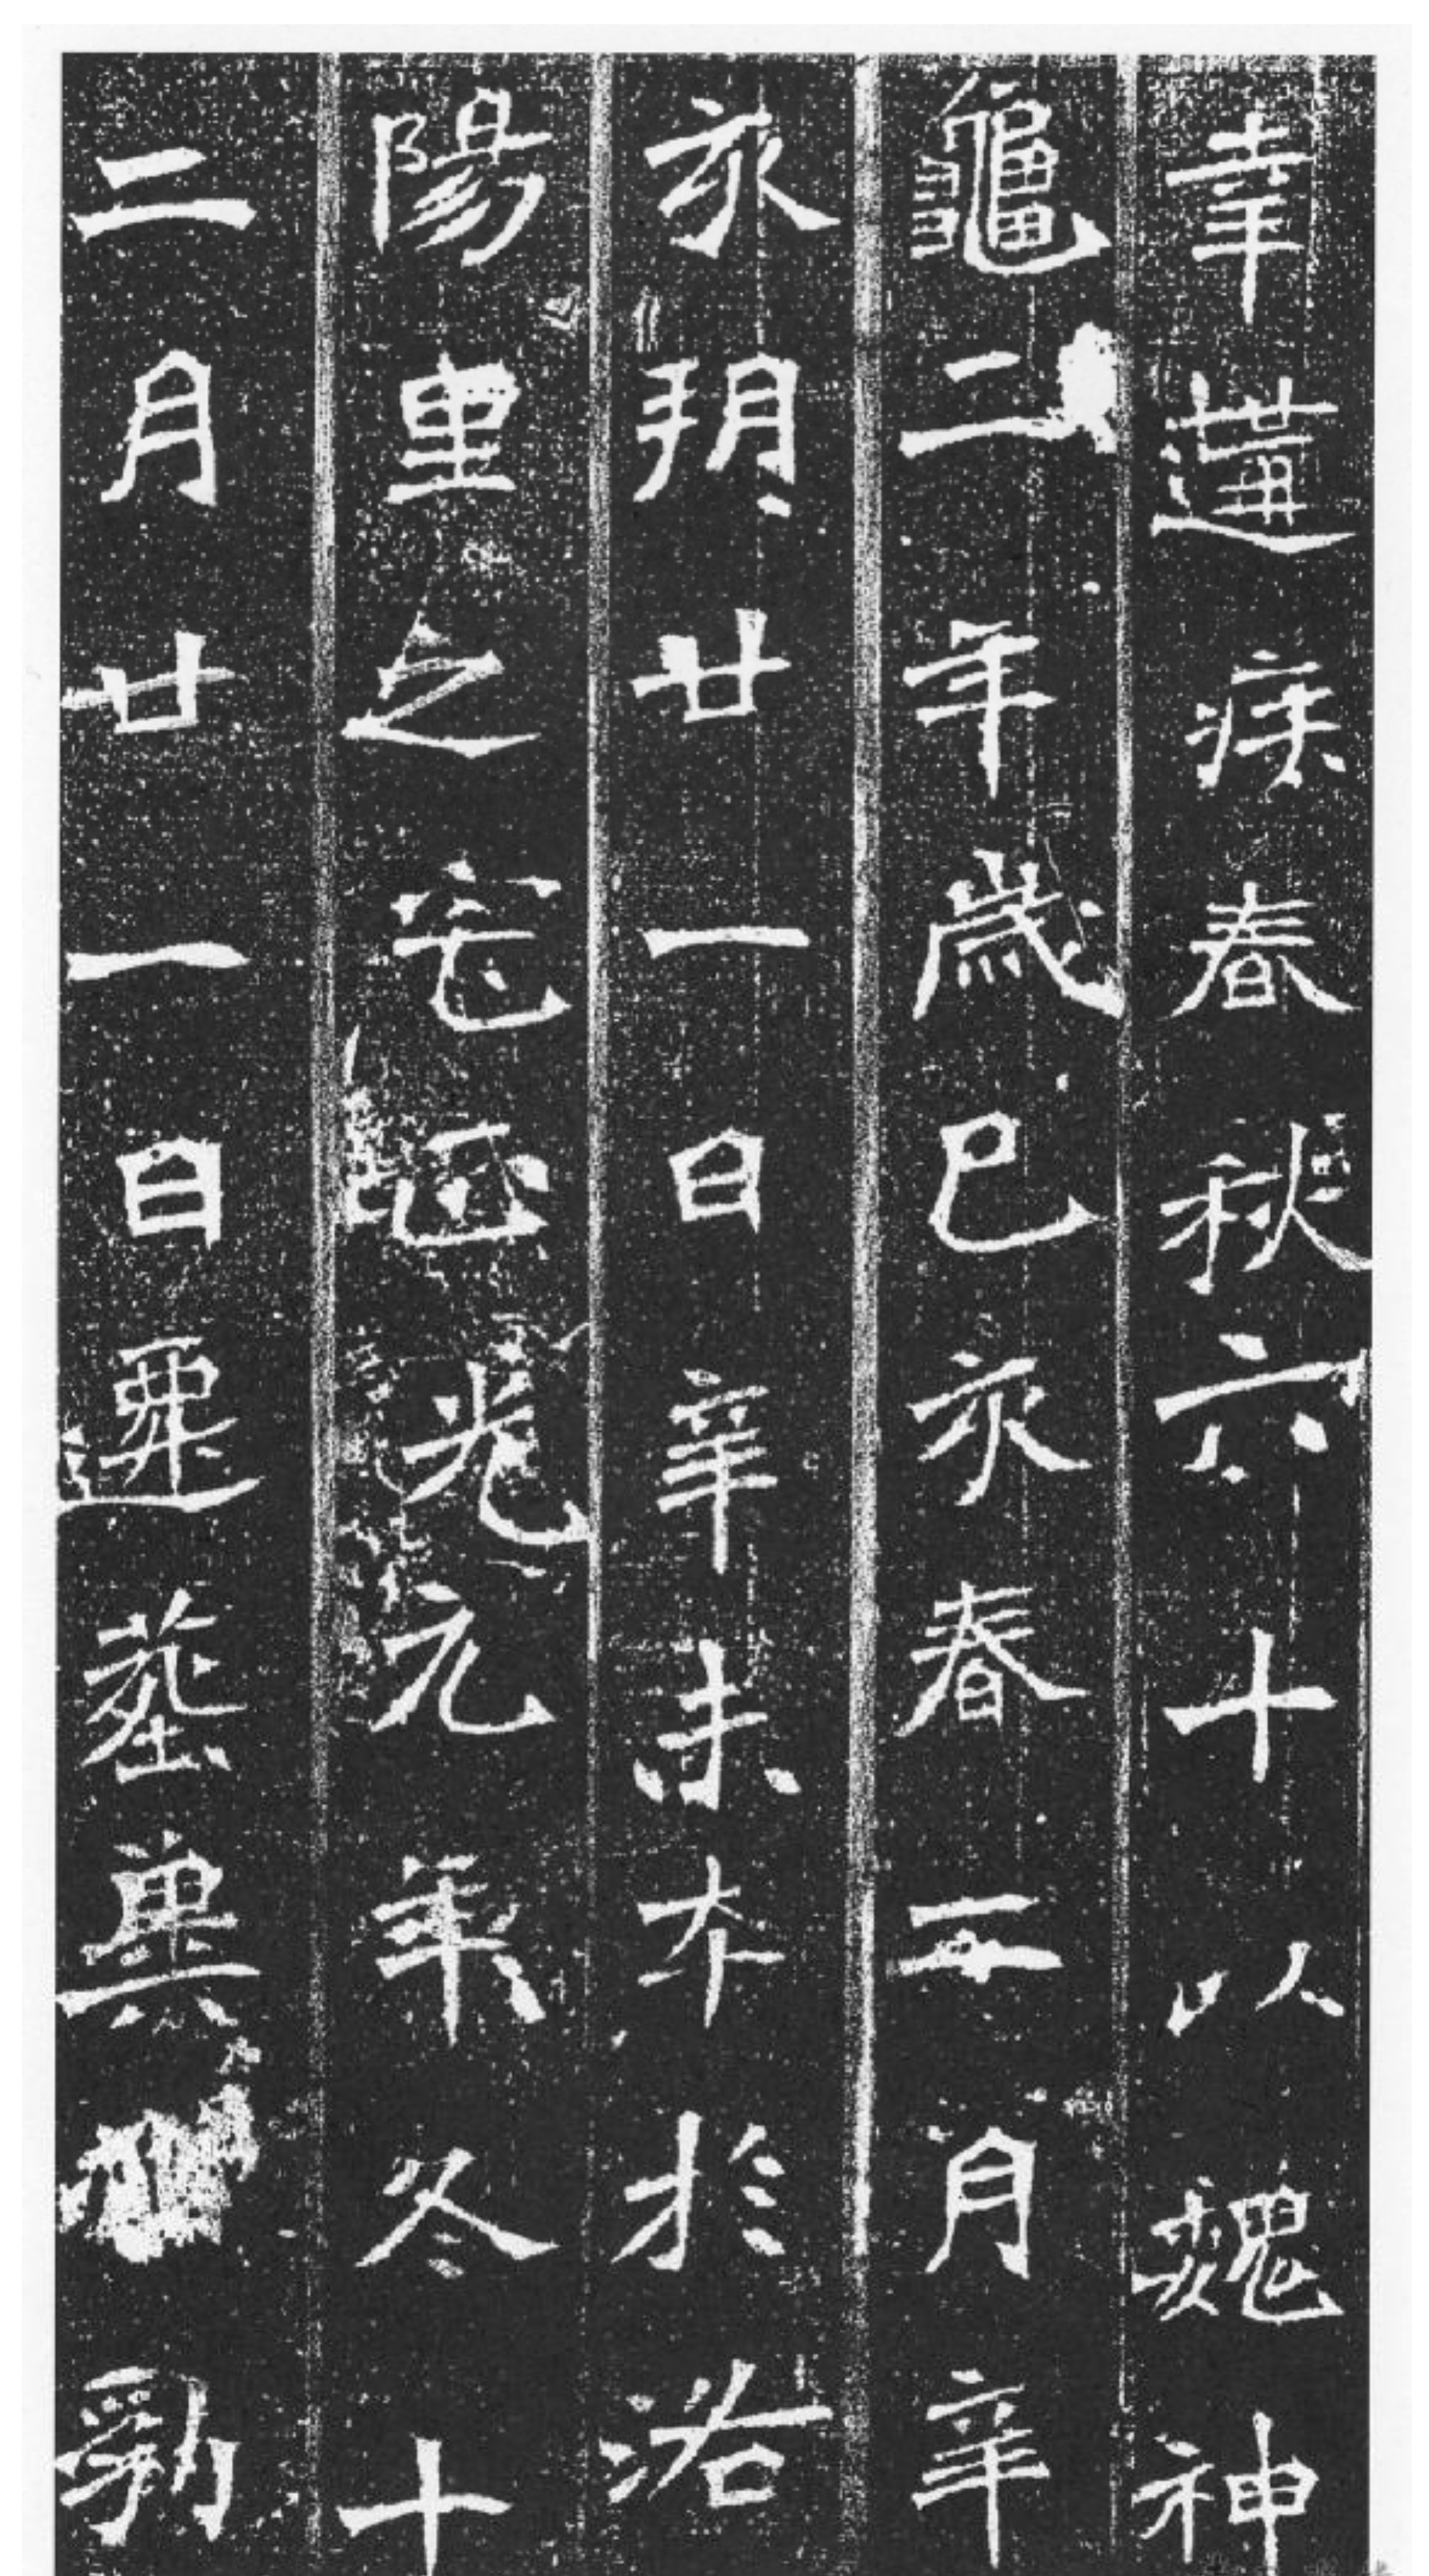 幸遘疾春秋六十以魏神
龜二年歲己亥春二月辛
亥朔廿一日辛未卒於洛
陽里之宅正光元年冬十
二月廿一日遷葬